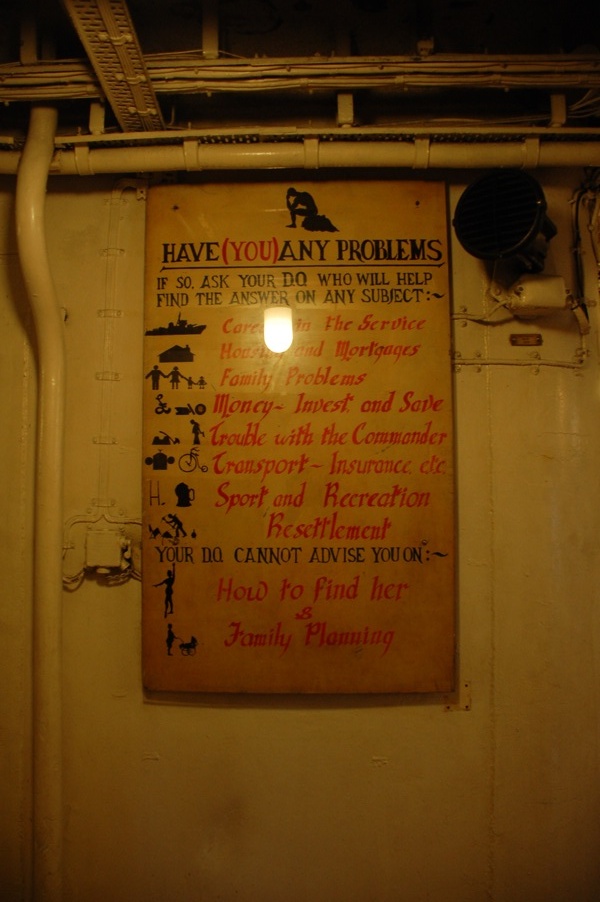 HAVE (YOU) ANY PROBLEMS
IF SO, ASK YOUR D.O. WHO WILL HELP
FIND THE ANSWER ON ANY SUBJECT:~
in the Service
and Mortgages
Family Problems
Money~ Invest and Save
Trouble with the Commander
Transport~ Insurance etc.
H. Sport and Recreation
Resettlement
YOUR D.O. CANNOT ADVISE YOU ON:~
How to find her
&
Family Planning